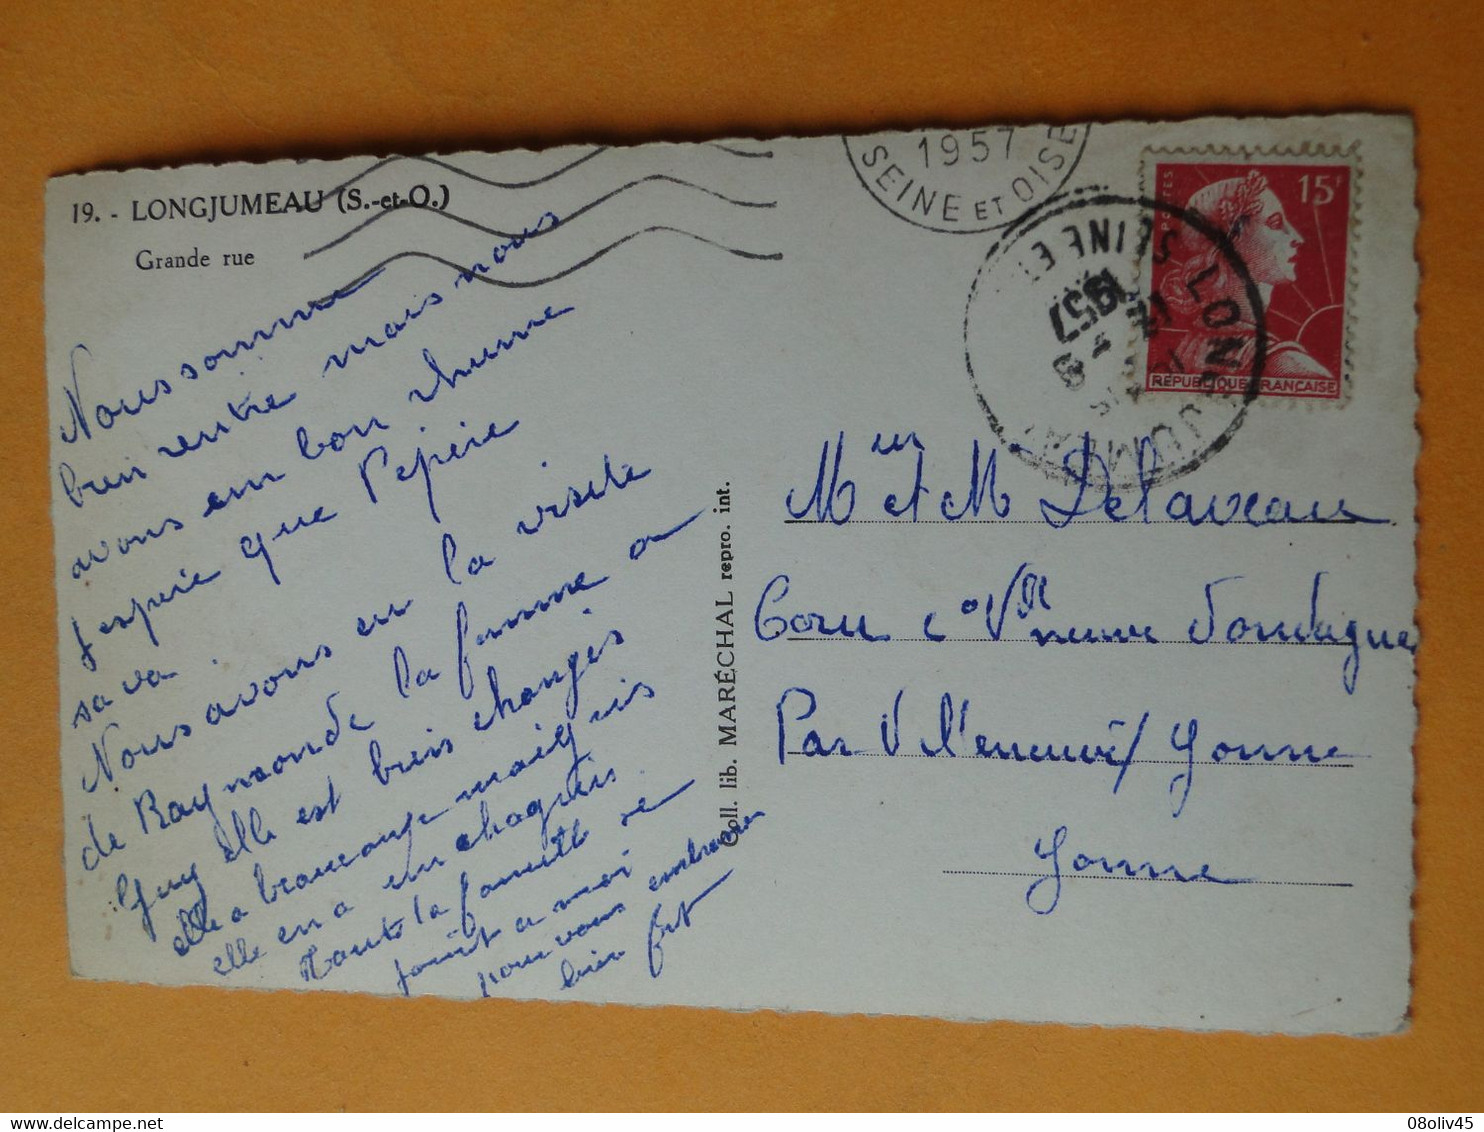 19. - LONGJUMEAU (S.-et-O.)
Grande rue
Nous somme
bien rentré mais nous
avons un bon rhume
J espère que Pépère
sa va
Nous avons eu la visite
de Raymonde la femme a
Guy elle est bien changés
elle a beaucoup maigris
elle en a un chagrin
Toute la famille se
joint a moi
pour vous embrasser
bien fort
Coll. lib. MARÉCHAL repro. int.
1957
SEINE ET OISE
LONGJUMEAU
SEINE ET
1957
15F
POSTES
REPUBLIQUE FRANÇAISE
Mme et M Delaveau
Par Vil'eneuve / Yonne
Yonne
08oliv45
delcampe.net